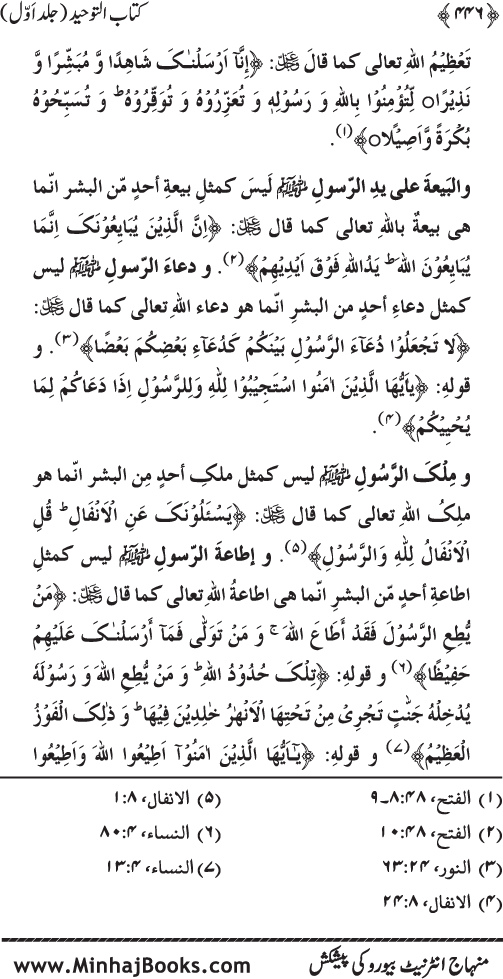 ﴿۴۴۶﴾ کتاب التوحید (جلد اَوّل)
تَعْظِیْمُ اللهِ تعالی کما قالَ ﷻ: ﴿اِنَّآ اَرْسَلْنٰـکَ شَاھِدًا وَّ مُبَشِّرًا وَّ
نَذِیْرًاo لِّتُؤْمِنُوْا بِاللهِ وَ رَسُوْلِهٖ وَ تُعَزِّرُوْهُ وَ تُوَقِّرُوْهُ ؕ وَ تُسَبِّحُوْهُ
بُکْرَةً وَّاَصِیْلًاo﴾(۱).
والبَیعةَ علی یدِ الرّسولِ ﷺ لَیسَ کمثلِ بیعةِ أحدٍ مّن البشر انّما
هی بیعةٌ باللهِ تعالی کما قال ﷻ: ﴿اِنَّ الَّذِیْنَ یُبَایِعُوْنَکَ اِنَّمَا
یُبَایِعُوْنَ اللهَ ؕ یَدُاللهِ فَوْقَ اَیْدِیْھِمْ﴾(۲). و دعاءَ الرّسولِ ﷺ لیس
کمثل دعاءِ أحدٍ من البشرِ انّما هو دعاء اللهِ تعالی کما قال ﷻ:
﴿لَا تَجْعَلُوْا دُعَآءَ الرَّسُوْلِ بَیْنَکُمْ کَدُعَآءِ بَعْضِکُمْ بَعْضًا﴾(۳). و
قولهِ: ﴿یٰاَیُّھَا الَّذِیْنَ اٰمَنُوْا اسْتَجِیْبُوْا لِلّٰهِ وَلِلرَّسُوْلِ اِذَا دَعَاکُمْ لِمَا
یُحْیِیْکُمْ﴾(۴).
و مِلْکَ الرَّسُولِ ﷺ لیس کمثل ملکِ أحدٍ مِن البشر انّما هو
ملِکُ اللهِ تعالی کما قال ﷻ: ﴿یَسْئَلُوْنَکَ عَنِ الْاَنْفَالِ ؕ قُلِ
الْاَنْفَالُ لِلّٰهِ وَالرَّسُوْلِ﴾(۵). و إطاعةَ الرّسولِ ﷺ لیس کمثلِ
اطاعةِ أحدٍ مّن البشرِ انّما هی اطاعةُ اللهِ تعالی کما قال ﷻ: ﴿مَنْ
یُّطِعِ الرَّسُوْلَ فَقَدْ أَطَاعَ اللهَ ۚ وَ مَنْ تَوَلّٰی فَمَآ أَرْسَلْنٰـکَ عَلَیْھِمْ
حَفِیْظًا﴾(۶) و قولهِ: ﴿تِلْکَ حُدُوْدُ اللهِ ؕ وَ مَنْ یُّطِعِ اللهَ وَ رَسُوْلَهٗ
یُدْخِلْهُ جَنّٰتٍ تَجْرِیْ مِنْ تَحْتِھَا الْاَنْھٰرُ خٰلِدِیْنَ فِیْھَا ؕ وَ ذٰلِکَ الْفَوْزُ
الْعَظِیْمُ﴾(۷) و قولهِ: ﴿یٰٓـاَیُّھَا الَّذِیْنَ اٰمَنُوْآ اَطِیْعُوا اللهَ وَاَطِیْعُوا
(۱) الفتح، ۴۸:۸۔۹
(۲) الفتح، ۴۸:۱۰
(۳) النور، ۲۴:۶۳
(۴) الانفال، ۸:۲۴
(۵) الانفال، ۸:۱
(۶) النساء، ۴:۸۰
(۷) النساء، ۴:۱۳
منہاج انٹرنیٹ بیورو کی پیشکش www.MinhajBooks.com